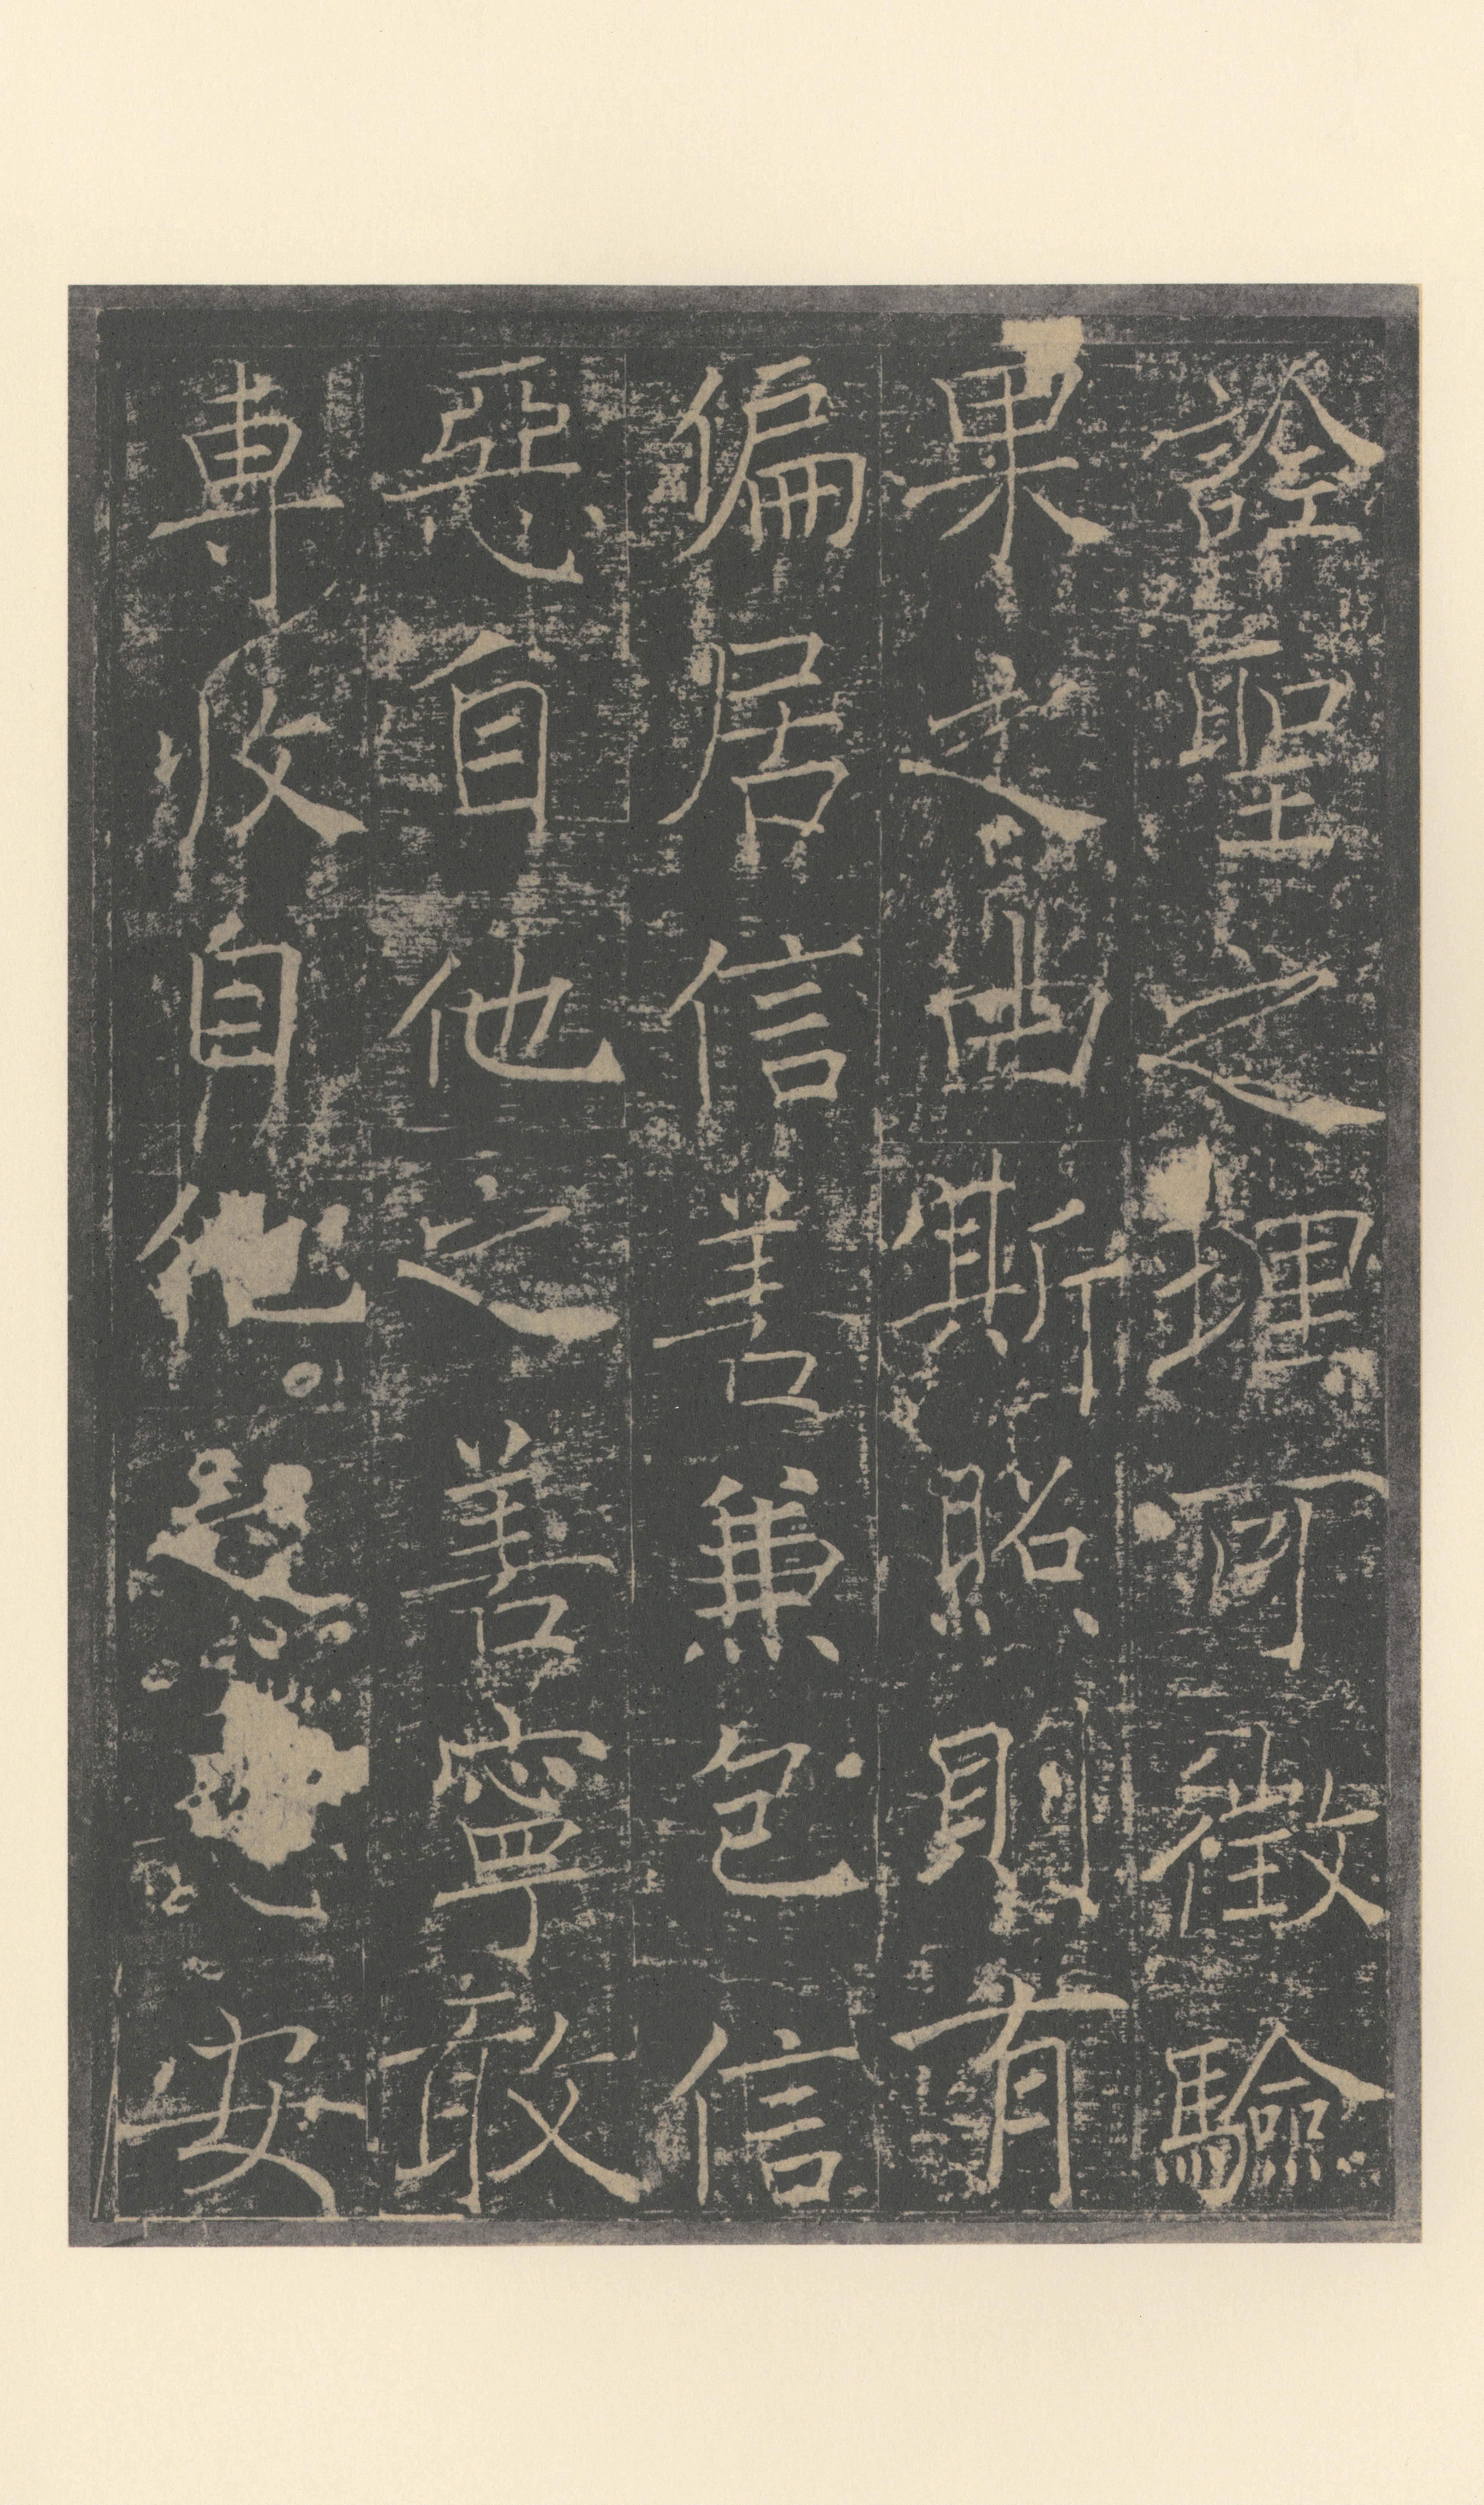 詮聖之理可徵驗
果之由斯照則有
偏居信善兼包信
惡自他之善寧敢
專收自他之安